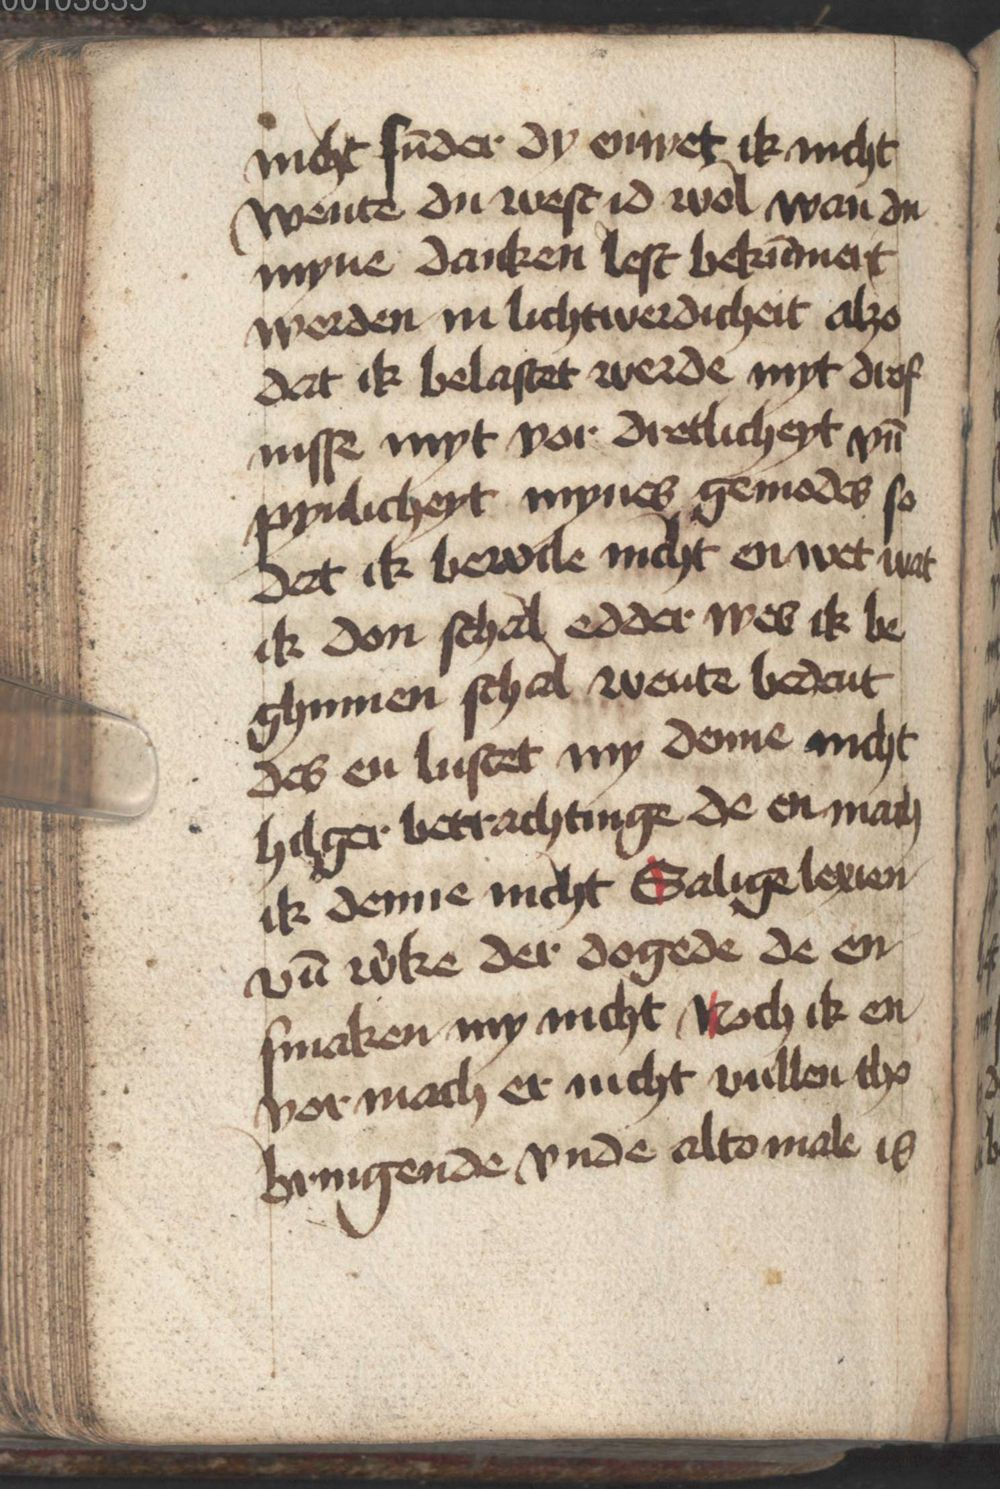 00103835
nicht sūder dy enwet ik nicht
wente du west id wol wan du
myne danken lest bekūmert
werden in lichtverdicheit also
dat ik belastet werde myt drof
nisse myt vor dretlicheyt vn̄
pynlicheyt mynes gemodes so
dat ik bewile nicht en wet wat
ik don schal edder wes ik be
ghinnen schal wente bedent
des en lustet my denne nicht
hilger betrachtinge de en mach
ik denne nicht Salige lexien
vn̄ wͦke der dogede de en
smaken my nicht Noch ik en
vor mach er nicht vullen tho
bringende vnde altomale is